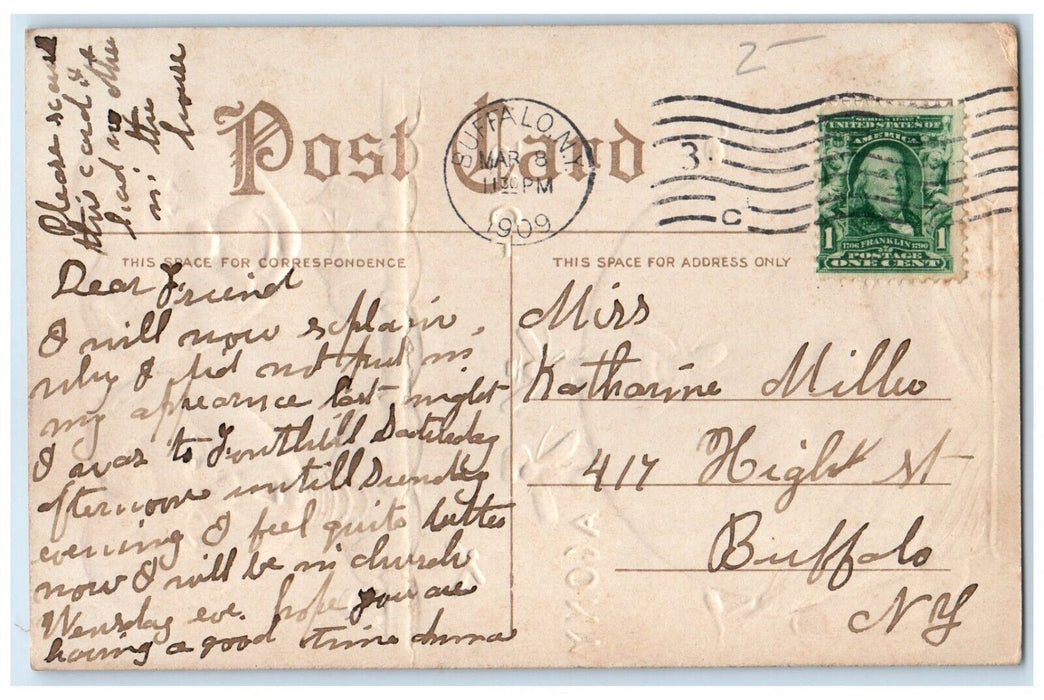 Please read
this card it
lead no the
in the
house
2-
Post Card
BUFFALO, N.Y.
MAR 8
11 30 PM
1909
3.
C
SERIES 1902
UNITED STATES OF
AMERICA
1 1706 FRANKLIN 1790 1
POSTAGE
ONE CENT
THIS SPACE FOR CORRESPONDENCE
THIS SPACE FOR ADDRESS ONLY
Dear Friend
I will now explain
why I did not put in
my appearance last night
I was to Fonthill Saturday
afternoon untill Sunday
evening I feel quite better
now I will be in church
Wensday eve. hope you are
having a good time
Miss
Katharine Miller
417 Hight St
Buffalo
NY